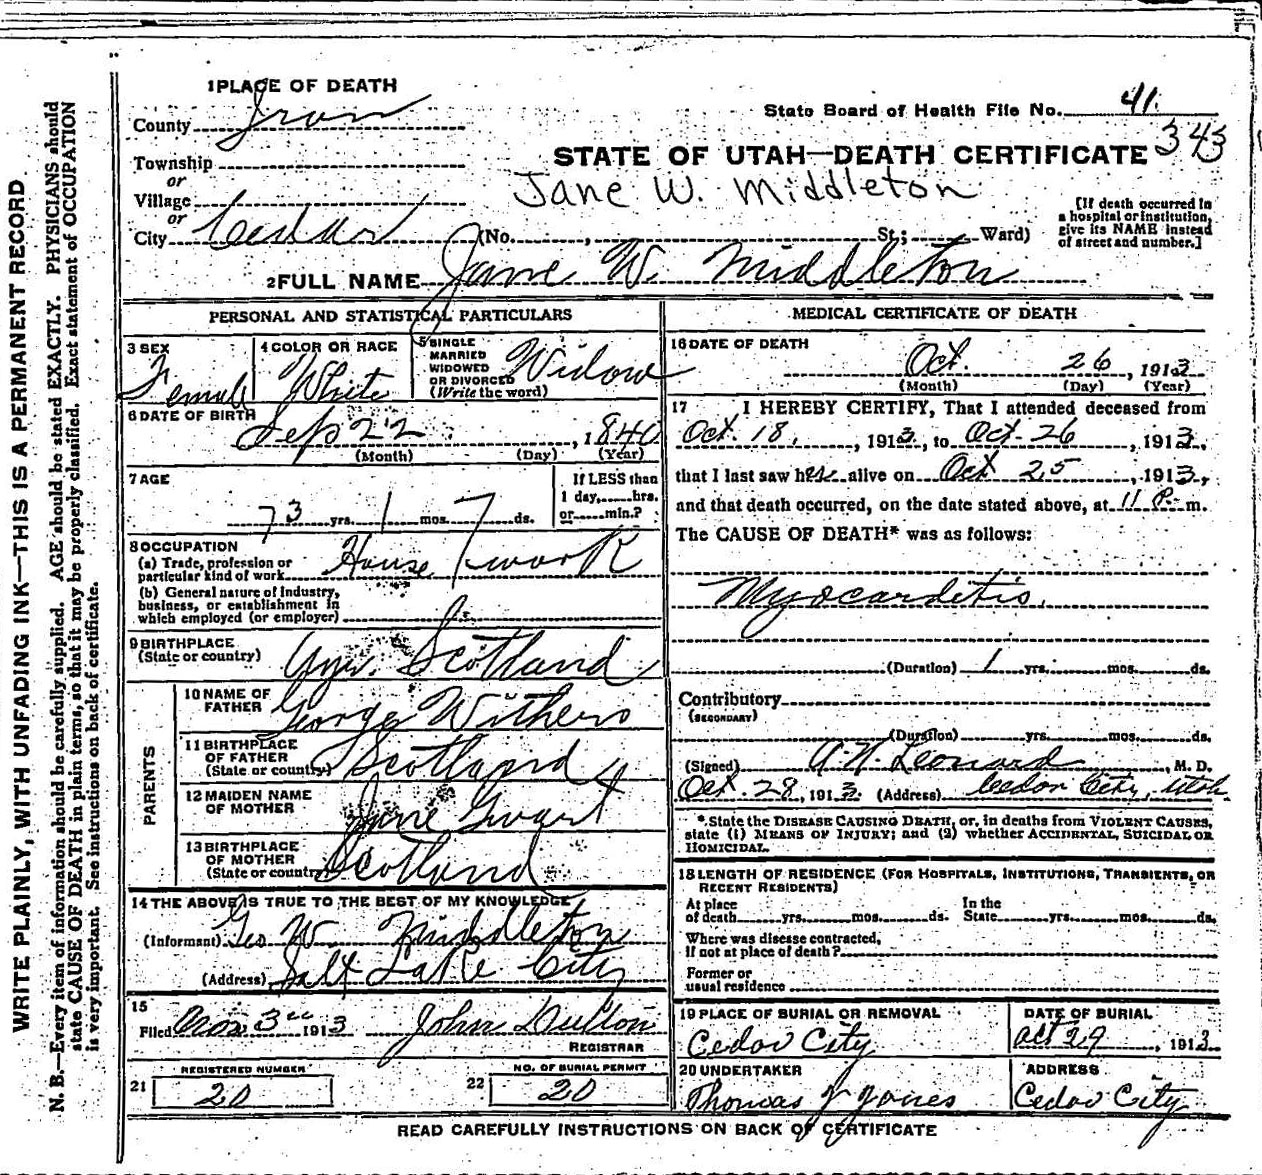 1 PLACE OF DEATH
County Iron
State Board of Health File No. 41.
343
Township
or
Village
or
City Cedar
STATE OF UTAH—DEATH CERTIFICATE
Jane W. Middleton
(No. , St.; Ward)
[If death occurred in
a hospital or institution,
give its NAME instead
of street and number.]
2 FULL NAME Jane W. Middleton
PERSONAL AND STATISTICAL PARTICULARS
3 SEX
Female
4 COLOR OR RACE
White
5 SINGLE
MARRIED
WIDOWED
OR DIVORCED
(Write the word)
Widow
6 DATE OF BIRTH
Sep 22 , 1840
(Month) (Day) (Year)
7 AGE
73 yrs. 1 mos. 7 ds.
If LESS than
1 day, hrs.
or min.?
8 OCCUPATION
(a) Trade, profession or
particular kind of work House work
(b) General nature of industry,
business, or establishment in
which employed (or employer)
9 BIRTHPLACE
(State or country)
Scotland
PARENTS
10 NAME OF
FATHER
George Withers
11 BIRTHPLACE
OF FATHER
(State or country)
Scotland
12 MAIDEN NAME
OF MOTHER
Jane
13 BIRTHPLACE
OF MOTHER
(State or country)
Scotland
14 THE ABOVE IS TRUE TO THE BEST OF MY KNOWLEDGE
(Informant) Geo W. Middleton
(Address) Salt Lake City
15
Filed Nov 3 1913 John
REGISTRAR
REGISTERED NUMBER
21 20
NO. OF BURIAL PERMIT
22 20
MEDICAL CERTIFICATE OF DEATH
16 DATE OF DEATH
Oct. 26 , 1913
(Month) (Day) (Year)
17 I HEREBY CERTIFY, That I attended deceased from
Oct. 18, , 1913, to Oct. 26 , 1913,
that I last saw her alive on Oct 25 , 1913,
and that death occurred, on the date stated above, at 11 P. m.
The CAUSE OF DEATH* was as follows:
Myocarditis.
(Duration) 1 yrs. mos. ds.
Contributory
(SECONDARY)
(Duration) yrs. mos. ds.
(Signed) A. N. Leonard , M. D.
Oct. 28, 1913. (Address) Cedar City, Utah.
*State the DISEASE CAUSING DEATH, or, in deaths from VIOLENT CAUSES,
state (1) MEANS OF INJURY; and (2) whether ACCIDENTAL, SUICIDAL OR
HOMICIDAL.
18 LENGTH OF RESIDENCE (FOR HOSPITALS, INSTITUTIONS, TRANSIENTS, OR
RECENT RESIDENTS)
At place
of death yrs. mos. ds.
In the
State yrs. mos. ds.
Where was disease contracted,
If not at place of death?
Former or
usual residence
19 PLACE OF BURIAL OR REMOVAL
Cedar City
DATE OF BURIAL
Oct 29 , 1913
20 UNDERTAKER
Thomas J Jones
ADDRESS
Cedar City
READ CAREFULLY INSTRUCTIONS ON BACK OF CERTIFICATE
WRITE PLAINLY, WITH UNFADING INK—THIS IS A PERMANENT RECORD
N. B.—Every item of information should be carefully supplied. AGE should be stated EXACTLY. PHYSICIANS should
state CAUSE OF DEATH in plain terms, so that it may be properly classified. Exact statement of OCCUPATION
is very important. See instructions on back of certificate.